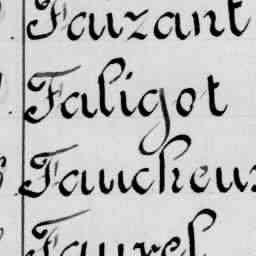 Faizant
Faligot
Faucheux
Faurel